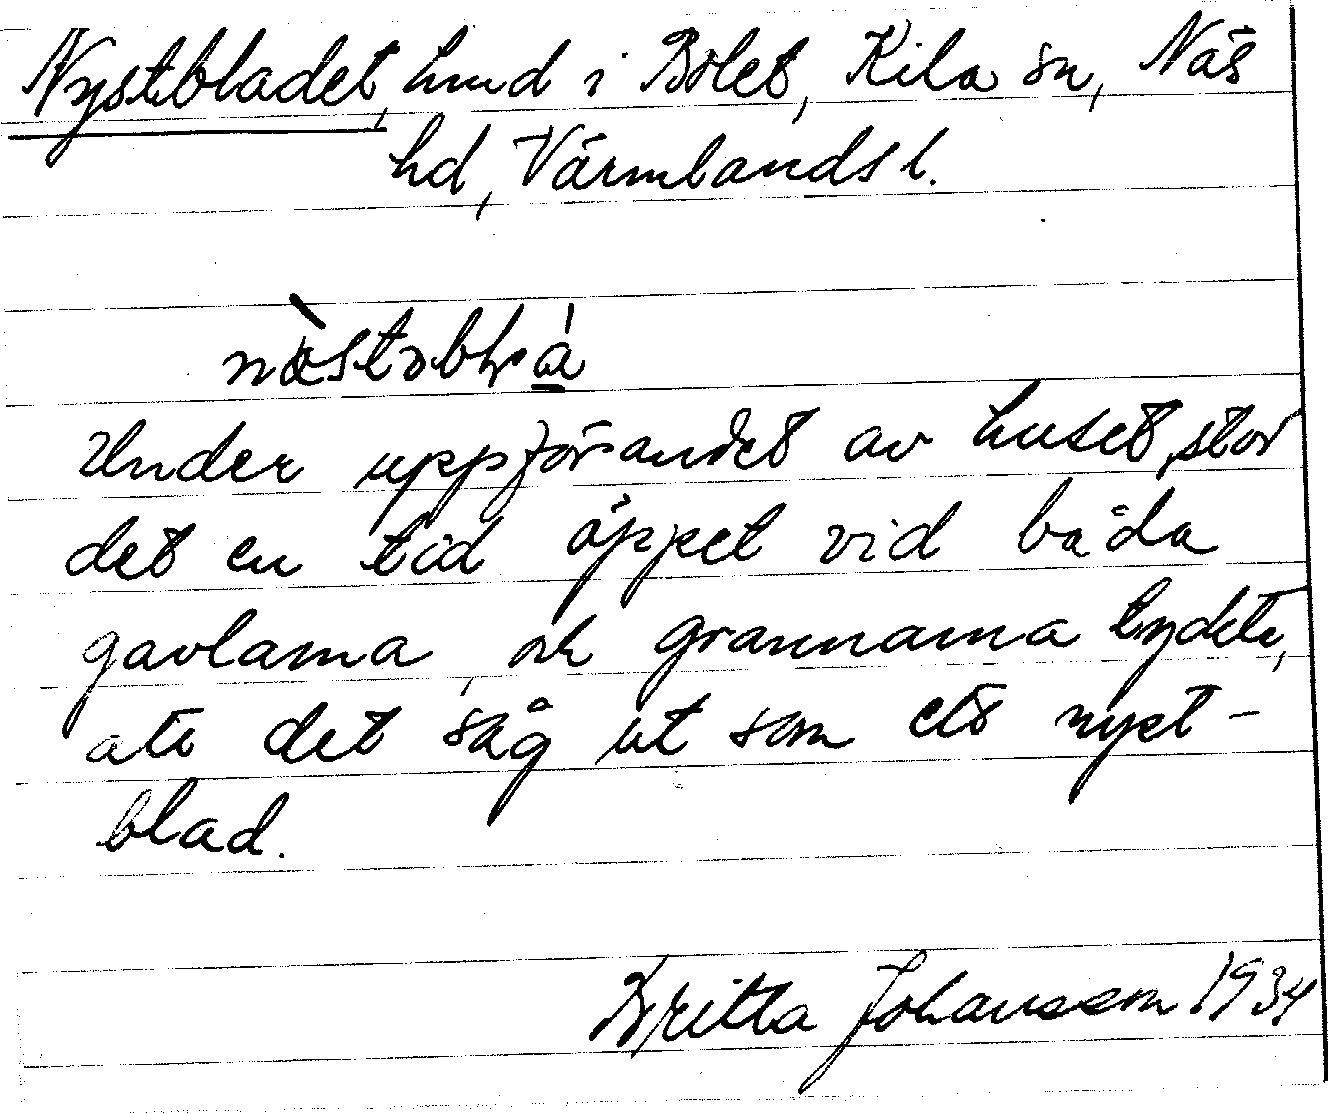 Nystebladet, lund i Bölet, Kila sn, Näs
hd, Värmlands l.
Under uppförandet av huset, stod
det en tid öppet vid båda
gavlarna, och grannarna tyckte,
att det såg ut som ett nyst-
blad.
Britta Johansson 1934